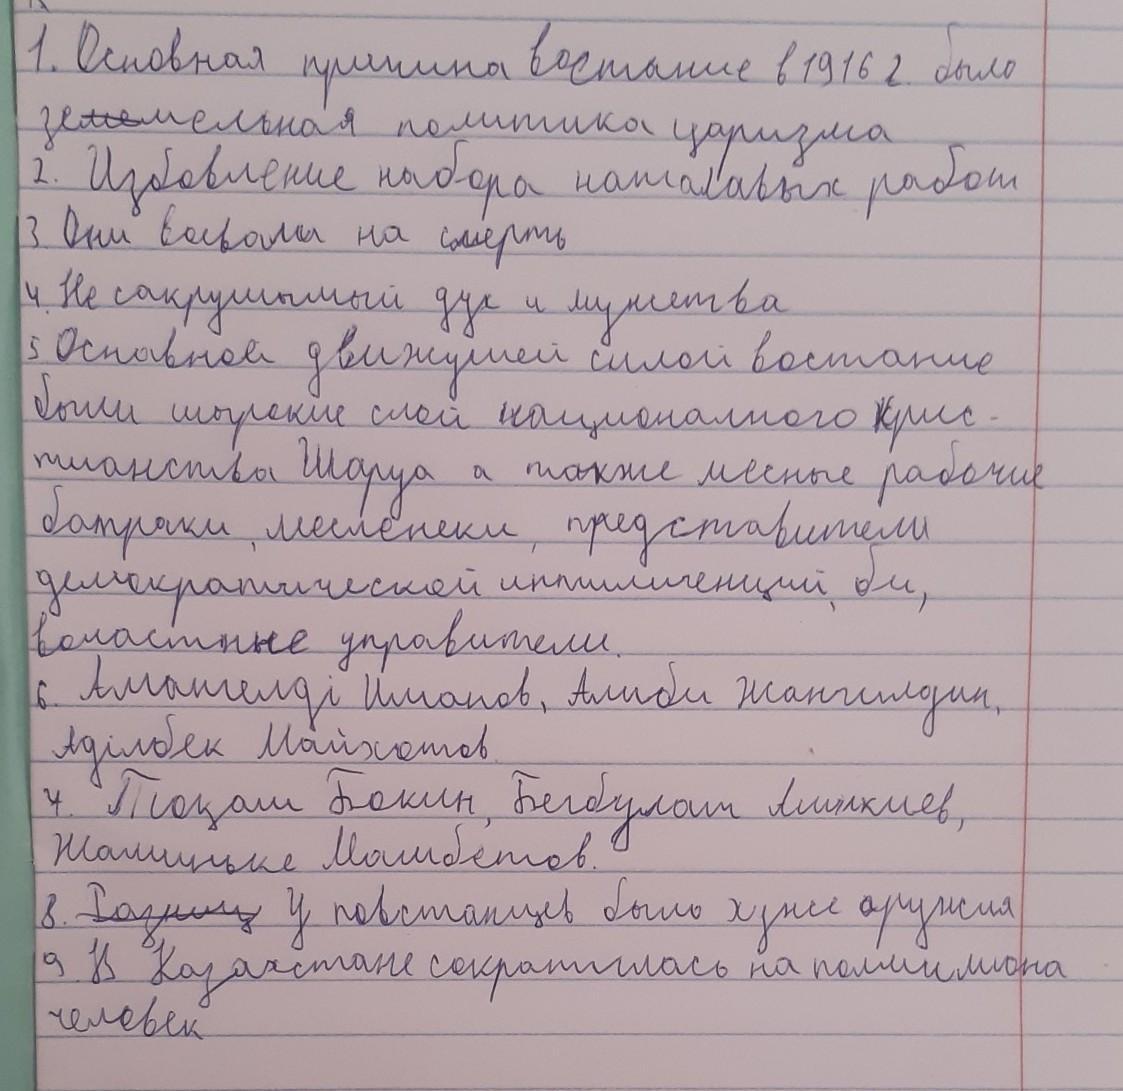 1. Основная причина востание в 1916 г. было
земельная политика царизма
2. Избовление набора наталавых работ
3 Они воевали на смерть
4. Не сакрушимый дух и мужетва
5 Основной движушей силой востание
были шырокие слой национални��ого крис-
тианства Шаруа а также месные рабочие
батраки, месленеки, представители
демократической интилигенций, би,
воластные управители.
6. Амангелді Иманов, Алиби Жангилдин,
Аділбек Майкотов
7. Тоқаш Бокин, Бегбулат Ашикиев,
Жаминьке Мамбетов.
8. У повстанцев было хуже оружия
9 В Казахстане сократилась на полмилиона
человек